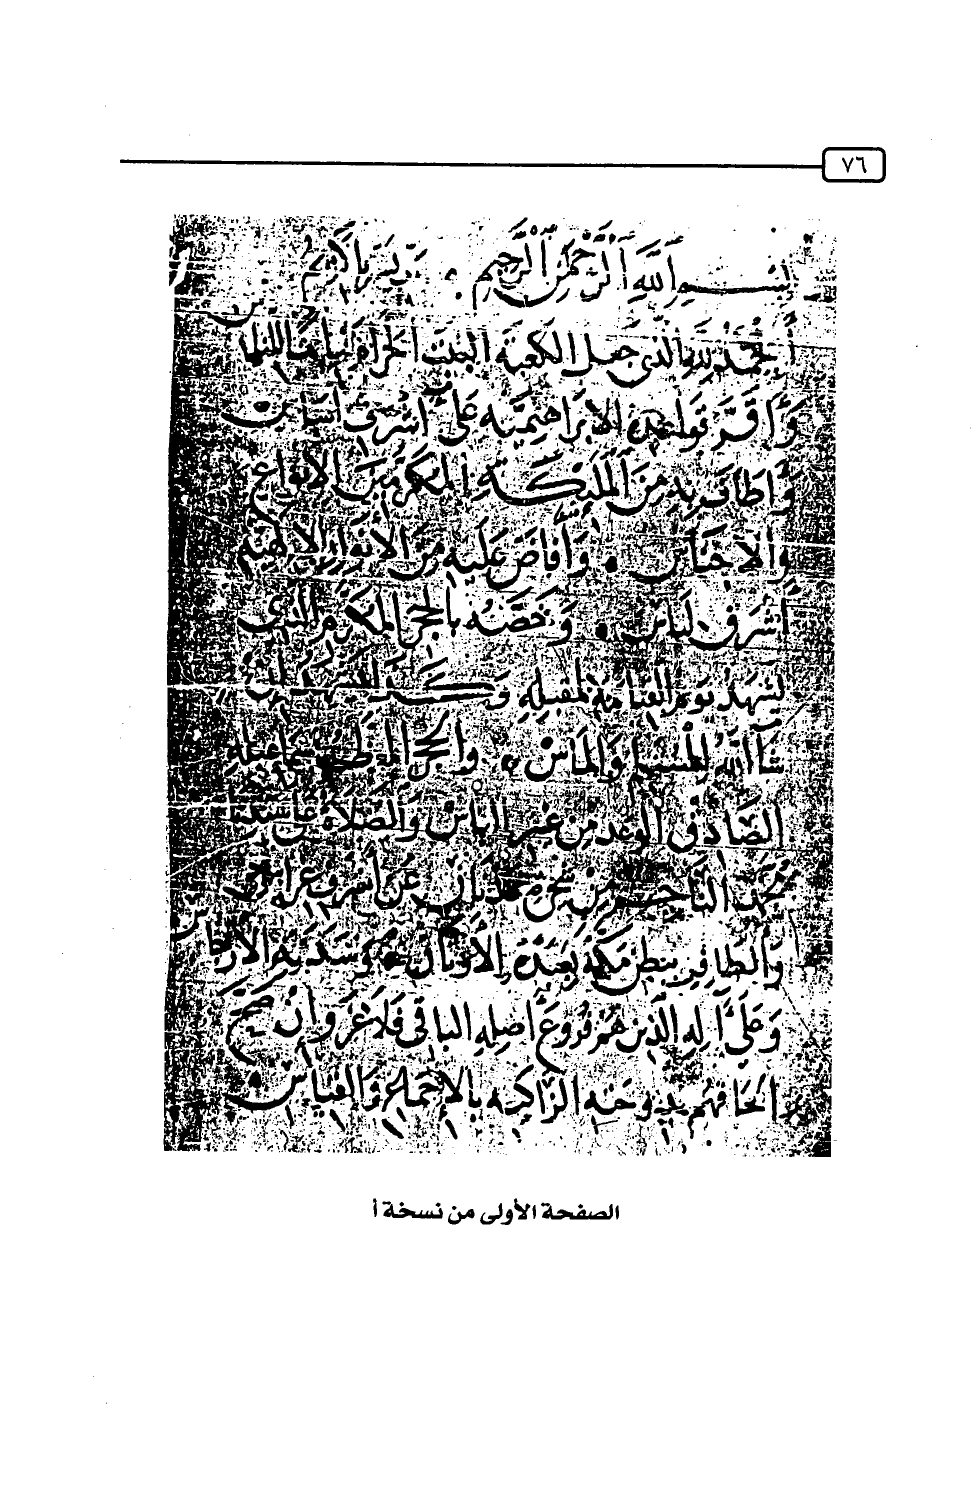 ٧٦
بسم الله الرحمن الرحيم رب يسر يا كريم
أَلحمد لله الذي جعل الكعبة البيت الحرام قياما للناس
وأقر قواعده الابراهيمية على أشرف أساس
وأطاف به من الملئكة المكرمين الأنواع
والأجناس وأفاض عليه من الأنوار الإلهية
أشرف لباس وخصه بالحجر المكرم الذي
يشهد يوم القيامة لمقبله
شآ الله والماس والحجر
الصادق الوعد من غير الياس والصلاة على سيدنا
محمد الناجم من خير محتد
والظافر ببطن مكة بعبدة الأوثان وسدنة الأرجاس
وعلى آله الذين هم فروع أصله الباقي فلا غرو ان صح
الحاقهم بدوحته الزاكية بالإجماع والقياس
الصفحة الأولى من نسخة أ